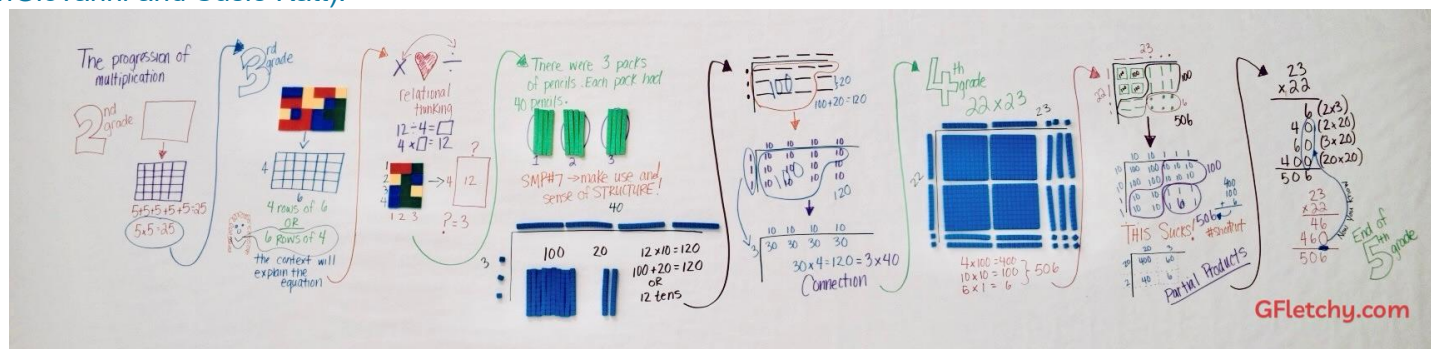 The progression of
multiplication
2nd
grade
5+5+5+5+5=25
5x5=25
3rd
grade
4
6
4 rows of 6
OR
6 rows of 4
the context will
explain the
equation
x ÷
relational
thinking
12÷4=□
4x□=12
1
2
3
4
1 2 3
?
4 12
?=3
There were 3 packs
of pencils. Each pack had
40 pencils.
1 2 3
SMP#7 → make use and
sense of STRUCTURE!
40
3
100 20
12x10=120
100+20=120
OR
12 tens
100
20
100+20=120
10 10 10 10
1
1
1
10 10 10 10
10 10
10
100
120
10 10 10 10
3 30 30 30 30
30x4=120=3x40
Connection
4th
grade
22x23
23
22
4x100=400
10x10=100
6x1=6
506
23
22
100
6
506
10 10 1 1 1
10 100 100 10 10 10
10 100 100 10 10 10
1 10 10
1 10 10
100
6
400
100
+ 6
506
THIS Sucks!
#shortcut
20 3
20 400 60
2 40 6
Partial Products
23
x22
6 (2x3)
40 (2x20)
60 (3x20)
400 (20x20)
506
23
x22
46
460
506
End of
5th
grade
GFletchy.com